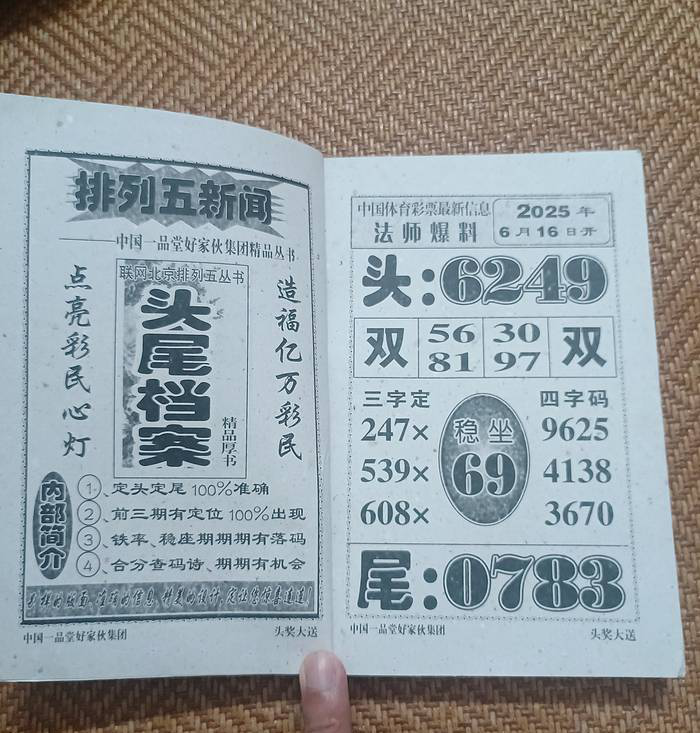 排列五新闻
——中国一品堂好家伙集团精品丛书
点亮彩民心灯
联网北京排列五丛书
头尾档案
精品厚书
造福亿万彩民
内部简介
①、定头定尾100%准确
②、前三期有定位100%出现
③、铁率、稳座期期期有落码
④、合分查码诗、期期有机会
中国一品堂好家伙集团
头奖大送
中国体育彩票最新信息
法师爆料
2025年
6月16日开
头:6249
双 56 30 双
81 97
三字定
247×
539×
608×
稳坐
69
四字码
9625
4138
3670
尾:0783
中国一品堂好家伙集团
头奖大送